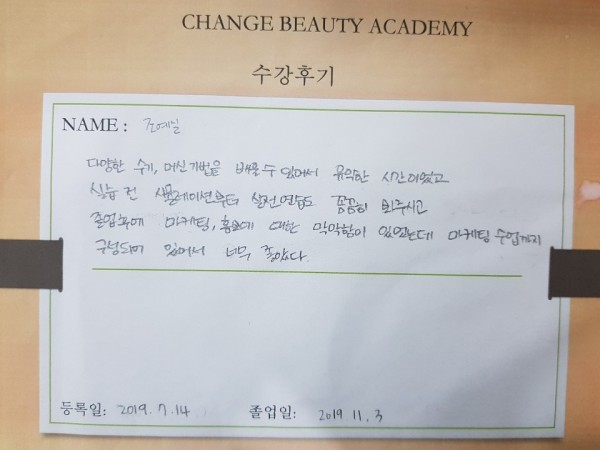 CHANGE BEAUTY ACADEMY
수강후기
NAME : 조예일
다양한 수기, 머신기법을 배울 수 있어서 유익한 시간이었고
실습 전 시뮬레이션부터 실전연습도 꼼꼼히 봐주시고
졸업후에 마케팅, 홍보에 대한 막막함이 있었는데 마케팅 수업까지
구성되어 있어서 너무 좋았다.
등록일: 2019. 7. 14 졸업일: 2019 11. 3